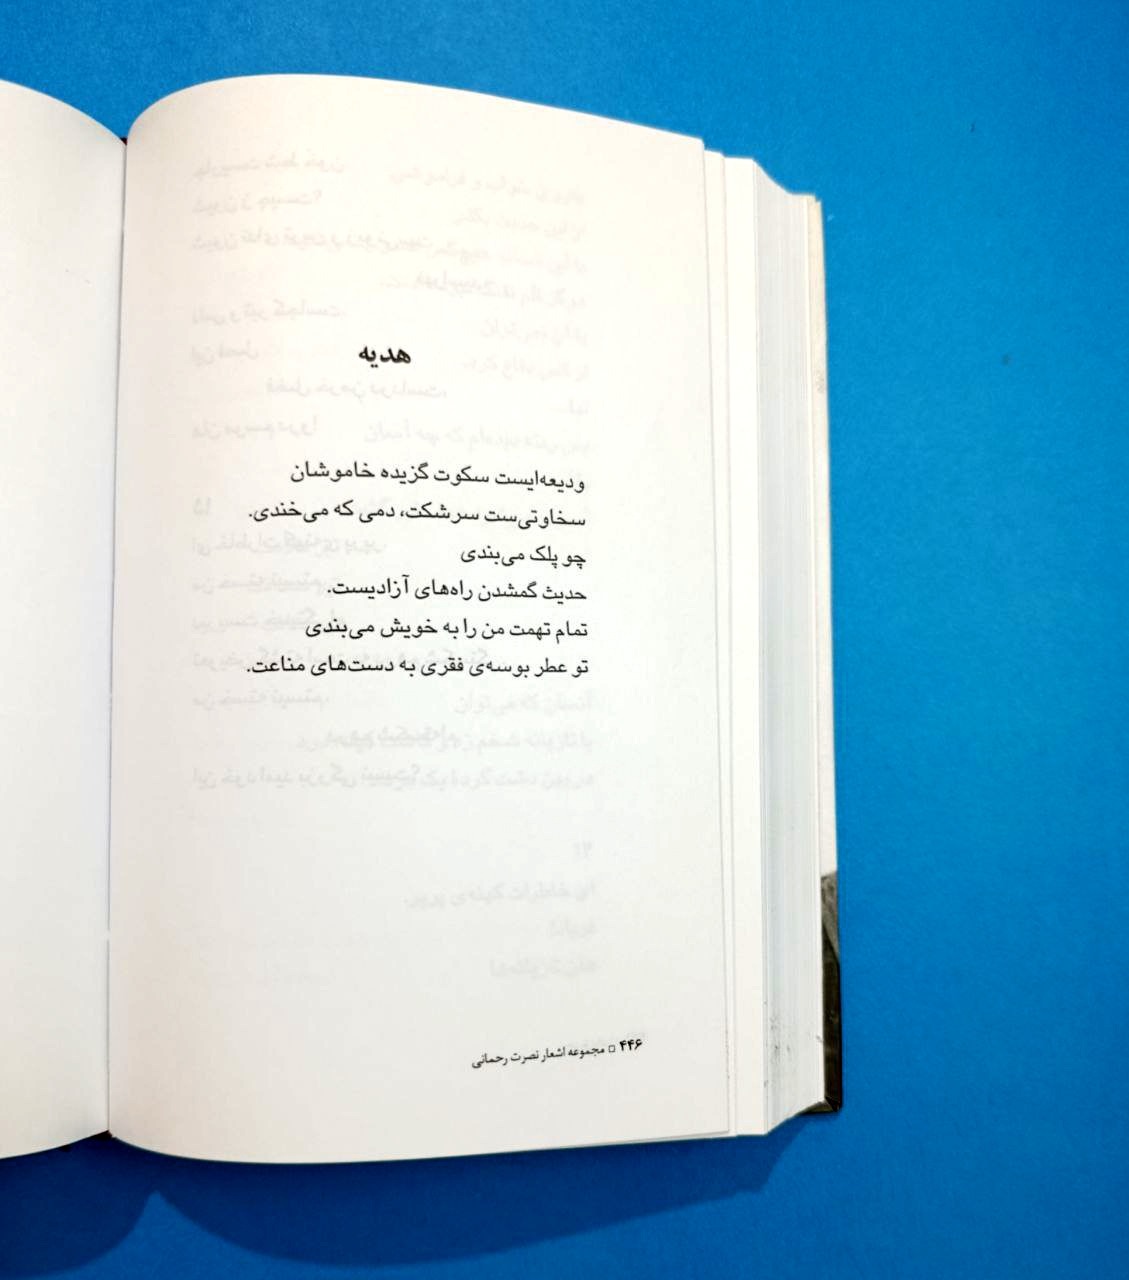 هدیه
ودیعه‌ایست سکوت گزیده خاموشان
سخاوتی‌ست سرشکت، دمی که می‌خندی.
چو پلک می‌بندی
حدیث گمشدن راه‌های آزادیست.
تمام تهمت من را به خویش می‌بندی
تو عطر بوسه‌ی فقری به دست‌های مناعت.
۴۴۶ □ مجموعه اشعار نصرت رحمانی